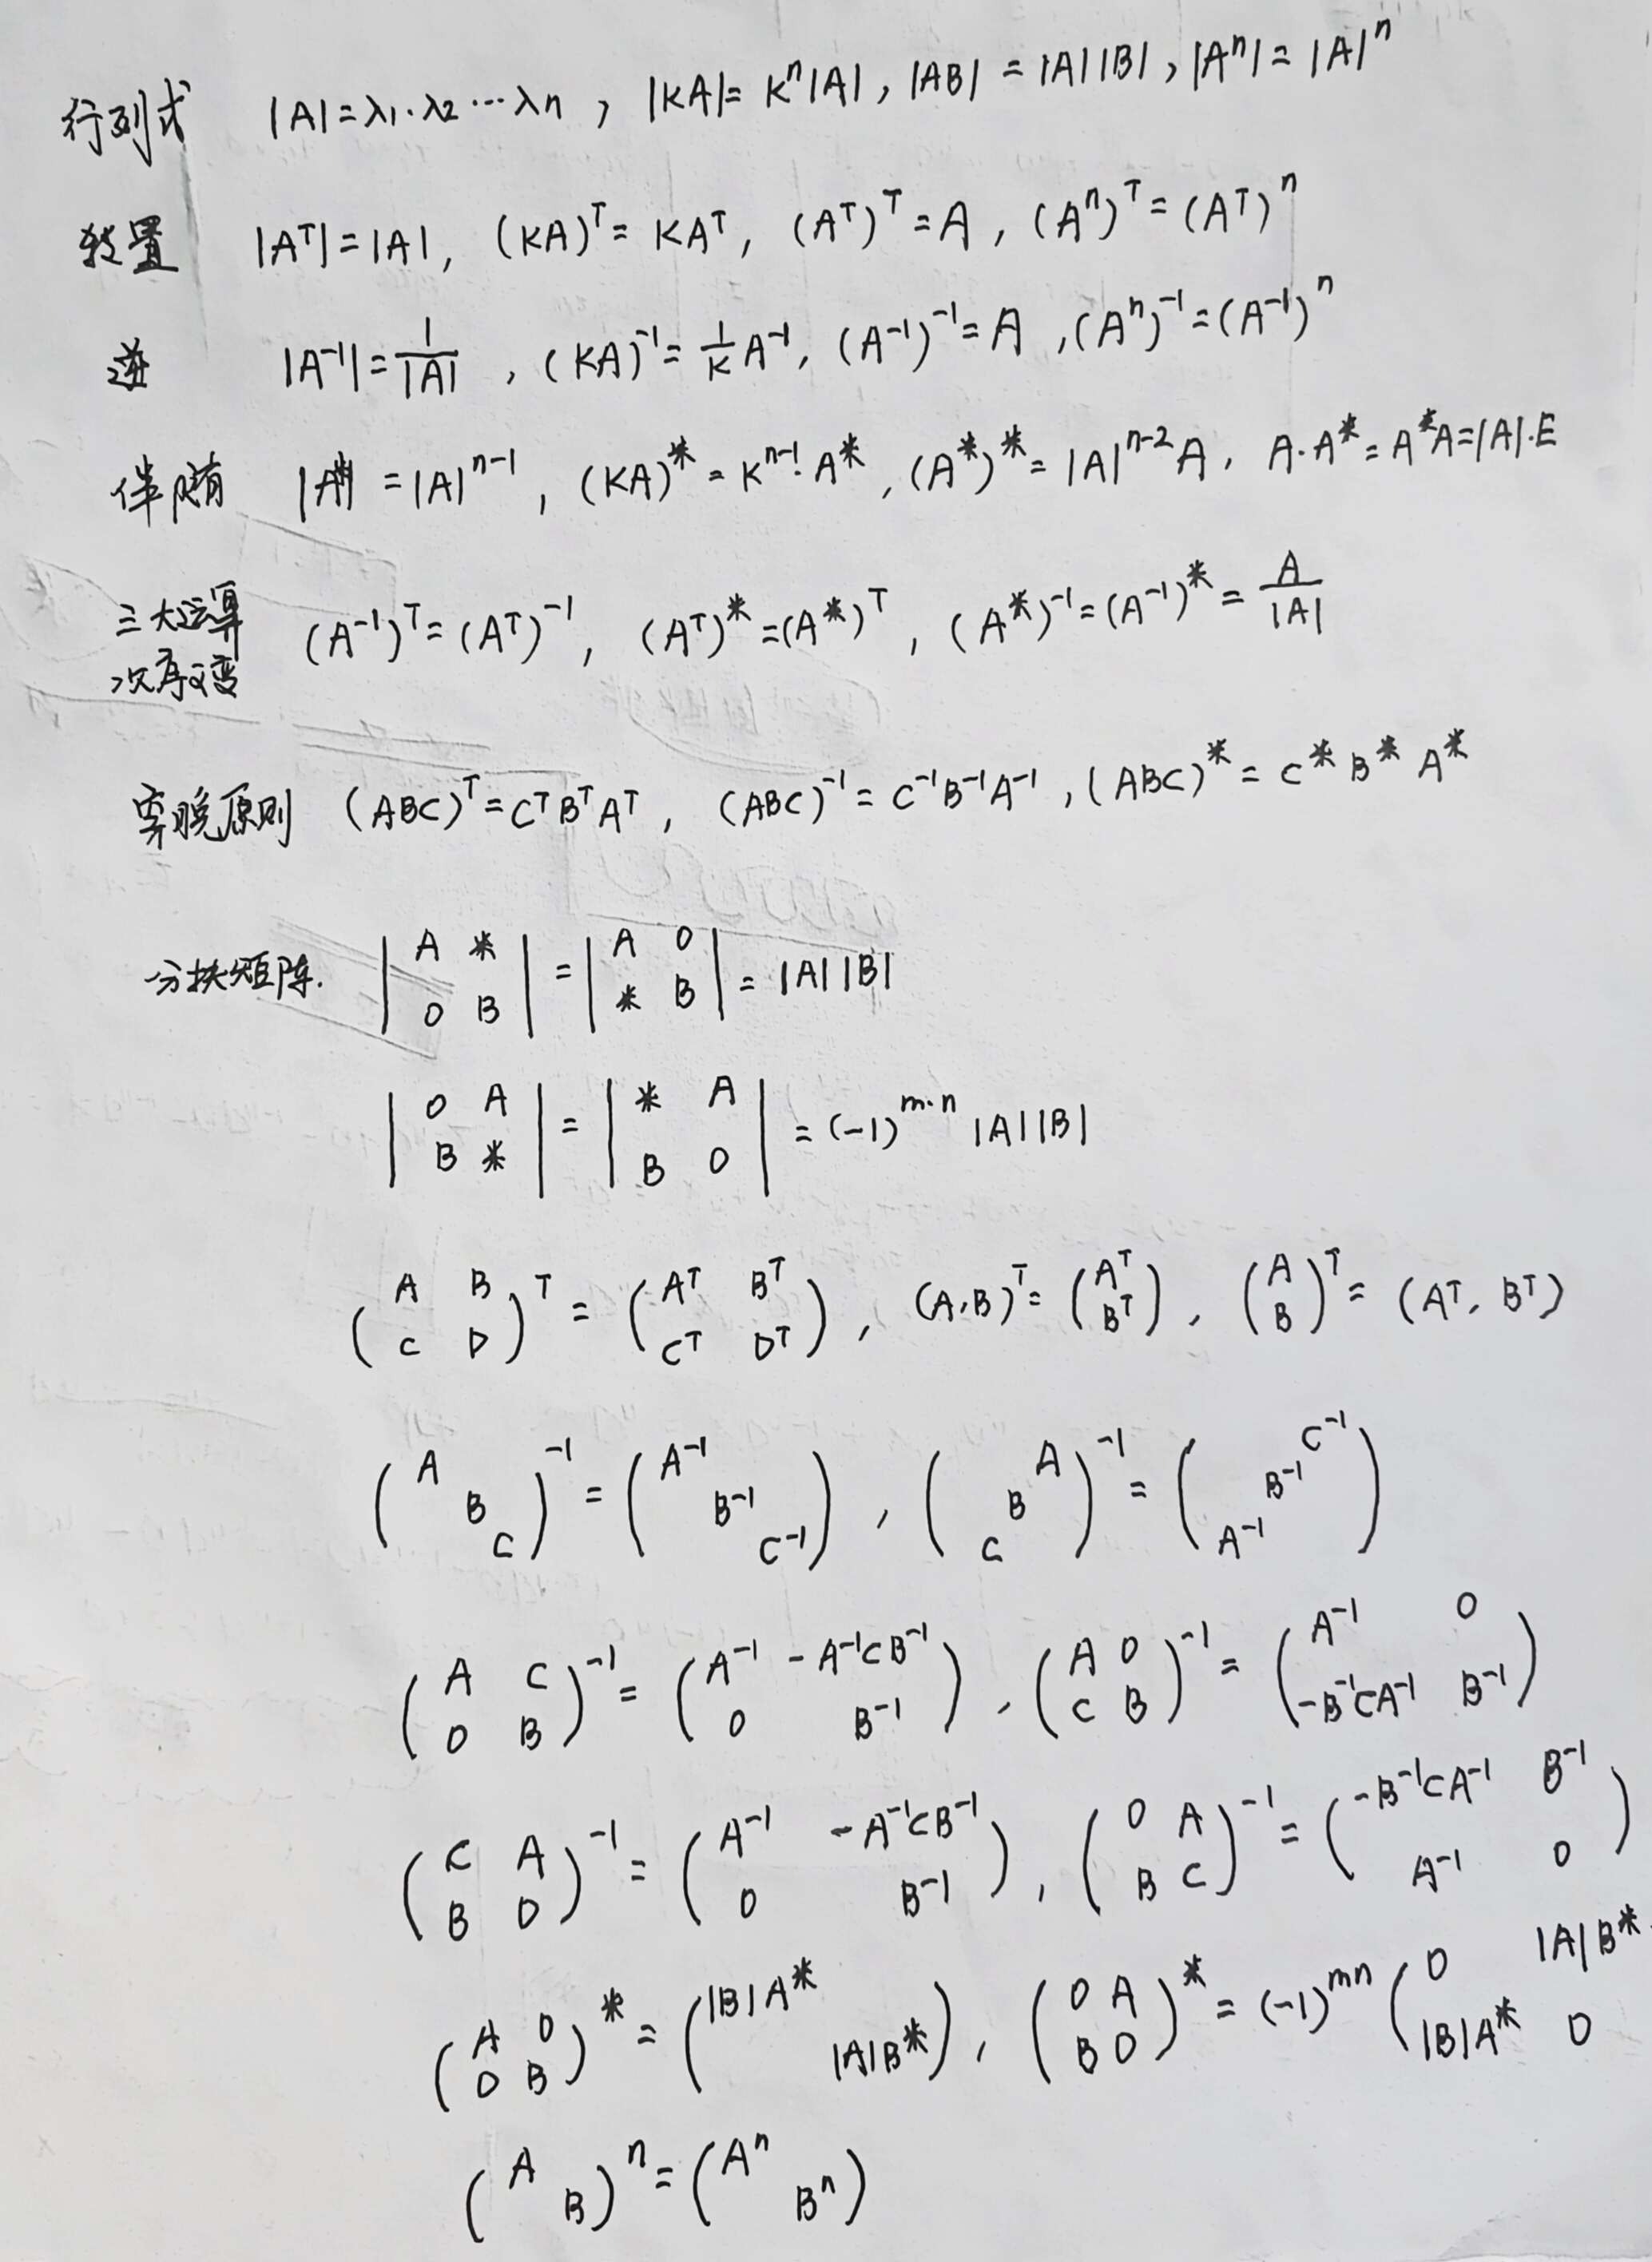 行列式 |A|=λ₁·λ₂⋯λn , |KA|=Kⁿ|A|, |AB|=|A||B|, |Aⁿ|=|A|ⁿ
转置 |Aᵀ|=|A|, (KA)ᵀ=KAᵀ, (Aᵀ)ᵀ=A, (Aⁿ)ᵀ=(Aᵀ)ⁿ
逆 |A⁻¹|=1/|A| , (KA)⁻¹=1/K A⁻¹, (A⁻¹)⁻¹=A ,(Aⁿ)⁻¹=(A⁻¹)ⁿ
伴随 |A*|=|A|ⁿ⁻¹, (KA)*=Kⁿ⁻¹·A*, (A*)*=|A|ⁿ⁻²A, A·A*=A*A=|A|·E
三大运算 (A⁻¹)ᵀ=(Aᵀ)⁻¹, (Aᵀ)*=(A*)ᵀ, (A*)⁻¹=(A⁻¹)*=A/|A|
次序变
穿脱原则 (ABC)ᵀ=CᵀBᵀAᵀ, (ABC)⁻¹=C⁻¹B⁻¹A⁻¹, (ABC)*=C*B*A*
分块矩阵. |A * ; O B| = |A O ; * B| = |A||B|
|O A ; B *| = |* A ; B O| = (-1)^(m·n) |A||B|
(A B ; C D)ᵀ = (Aᵀ Bᵀ ; Cᵀ Dᵀ), (A,B)ᵀ = (Aᵀ ; Bᵀ), (A ; B)ᵀ = (Aᵀ, Bᵀ)
(A ; B ; C)⁻¹ = (A⁻¹ ; B⁻¹ ; C⁻¹), (A ; B ; C)⁻¹ = (C⁻¹ ; B⁻¹ ; A⁻¹)
(A C ; O B)⁻¹ = (A⁻¹ -A⁻¹CB⁻¹ ; O B⁻¹), (A O ; C B)⁻¹ = (A⁻¹ O ; -B⁻¹CA⁻¹ B⁻¹)
(C A ; B O)⁻¹ = (A⁻¹ -A⁻¹CB⁻¹ ; O B⁻¹), (O A ; B C)⁻¹ = (-B⁻¹CA⁻¹ B⁻¹ ; A⁻¹ O)
(A O ; O B)* = (|B|A* ; |A|B*), (O A ; B O)* = (-1)^(mn) (O |A|B* ; |B|A* O
(A ; B)ⁿ = (Aⁿ ; Bⁿ)